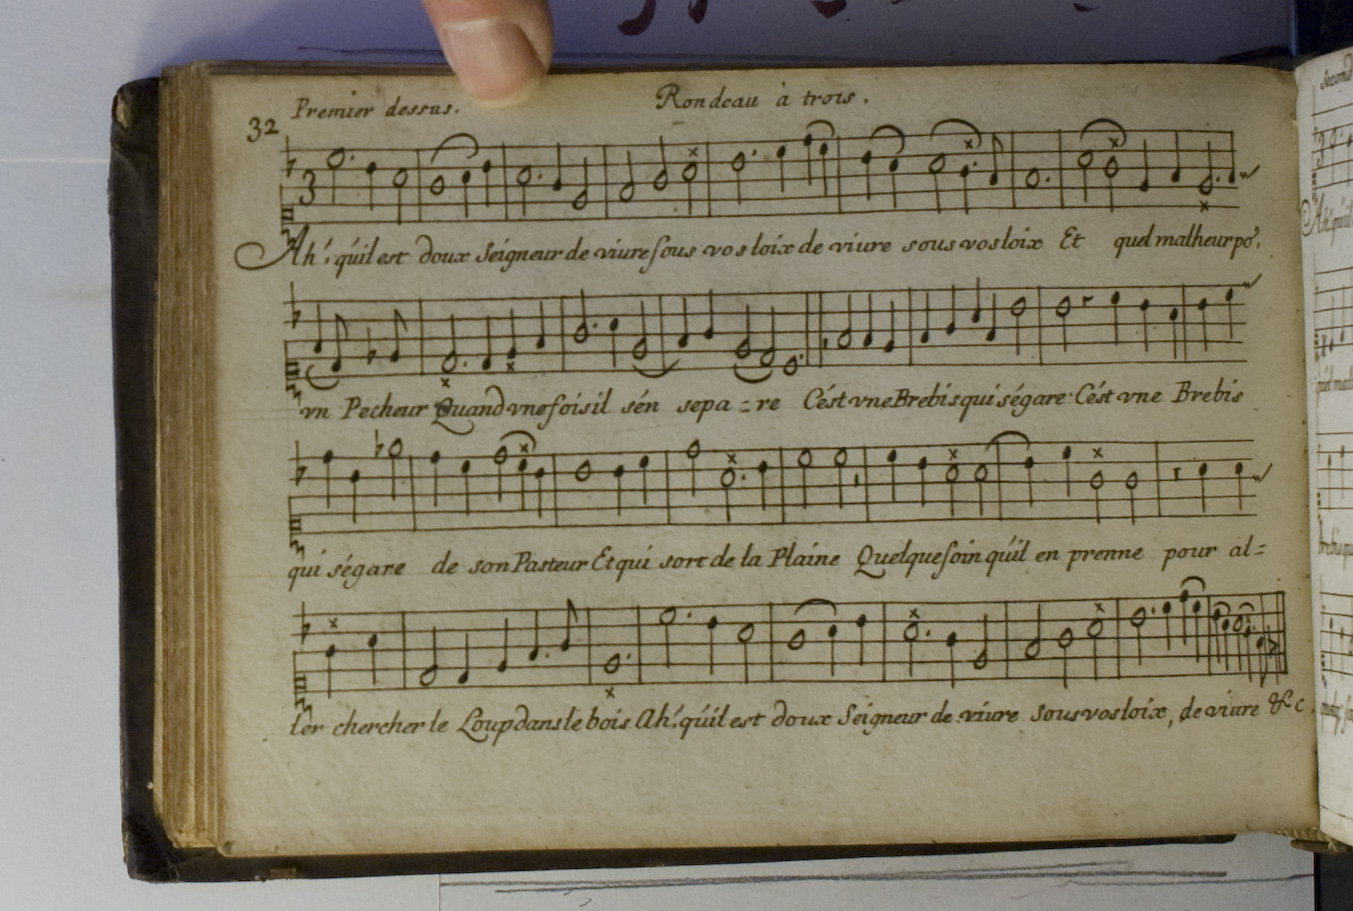 Premier dessus. Rondeau à trois.
32
3
Ah! qu'il est doux Seigneur de viure sous vos loix de viure sous vos loix Et quel malheur po.r
vn Pecheur Quand vne fois il s'en sepa = re C'est vne Brebis qui s'égare C'est vne Brebis
qui s'égare de son Pasteur Et qui sort de la Plaine Quelque soin qu'il en prenne pour al=
ler chercher le Loup dans le bois Ah! qu'il est doux Seigneur de viure sous vos loix, de viure &c.
Second